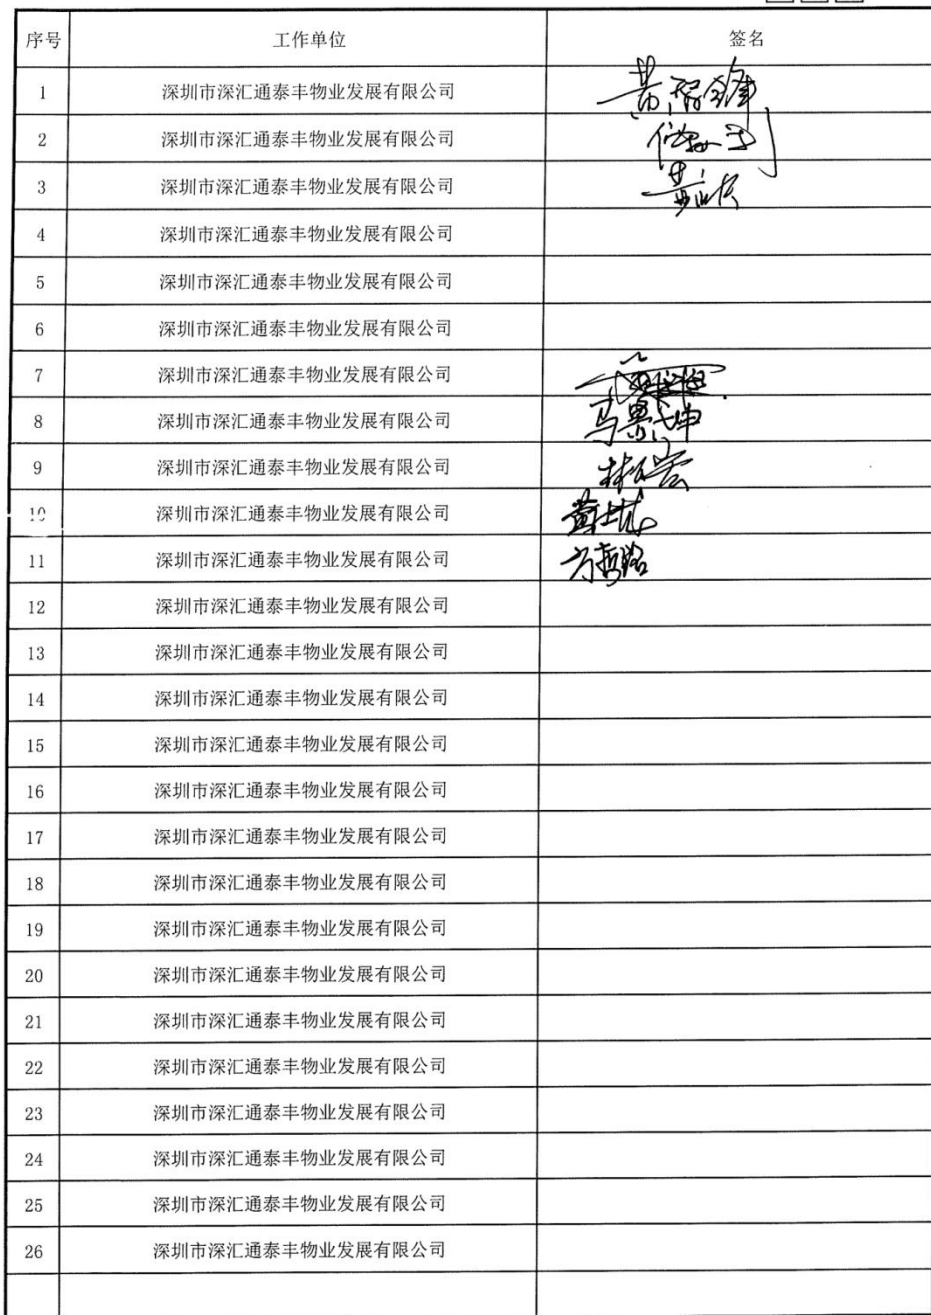 序号 工作单位 签名
1 深圳市深汇通泰丰物业发展有限公司
2 深圳市深汇通泰丰物业发展有限公司
3 深圳市深汇通泰丰物业发展有限公司
4 深圳市深汇通泰丰物业发展有限公司
5 深圳市深汇通泰丰物业发展有限公司
6 深圳市深汇通泰丰物业发展有限公司
7 深圳市深汇通泰丰物业发展有限公司
8 深圳市深汇通泰丰物业发展有限公司 马景坤
9 深圳市深汇通泰丰物业发展有限公司
10 深圳市深汇通泰丰物业发展有限公司
11 深圳市深汇通泰丰物业发展有限公司 方哲铭
12 深圳市深汇通泰丰物业发展有限公司
13 深圳市深汇通泰丰物业发展有限公司
14 深圳市深汇通泰丰物业发展有限公司
15 深圳市深汇通泰丰物业发展有限公司
16 深圳市深汇通泰丰物业发展有限公司
17 深圳市深汇通泰丰物业发展有限公司
18 深圳市深汇通泰丰物业发展有限公司
19 深圳市深汇通泰丰物业发展有限公司
20 深圳市深汇通泰丰物业发展有限公司
21 深圳市深汇通泰丰物业发展有限公司
22 深圳市深汇通泰丰物业发展有限公司
23 深圳市深汇通泰丰物业发展有限公司
24 深圳市深汇通泰丰物业发展有限公司
25 深圳市深汇通泰丰物业发展有限公司
26 深圳市深汇通泰丰物业发展有限公司